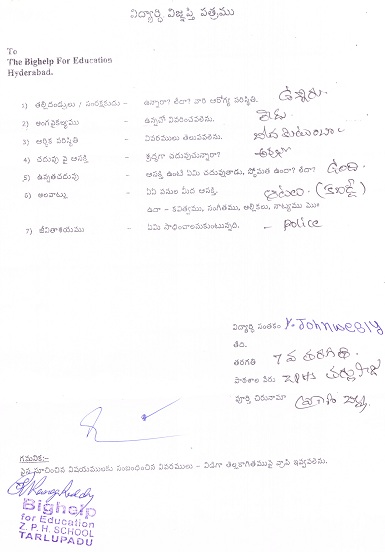 విద్యార్థి విజ్ఞప్తి పత్రము
To
The Bighelp For Education
Hyderabad.
1) తల్లిదండ్రులు / సంరక్షకుడు - ఉన్నారా? లేదా? వారి ఆరోగ్య పరిస్థితి. ఉన్నారు.
2) అంగవైకల్యము - ఉన్నచో వివరించవలెను. లేదు
3) ఆర్థిక పరిస్థితి - వివరములు తెలుపవలెను.
4) చదువు పై ఆసక్తి - శ్రద్ధగా చదువుచున్నారా?
5) ఉన్నతచదువు - ఆసక్తి ఉంటే ఏమి చదువుతాడు, స్తోమత ఉందా? లేదా? ఉంది.
6) అలవాట్లు - ఏయే పనుల మీద ఆసక్తి. ఆటలు. (కబడ్డీ)
ఉదా - కవిత్వము, సంగీతము, అల్లికలు, నాట్యము
7) జీవితాశయము - ఏమి సాధించాలనుకుంటున్నది. - police
విద్యార్థి సంతకం Y. Johnwesly
తేది.
తరగతి 7 వ తరగతి.
పాఠశాల పేరు
పూర్తి చిరునామా
గమనిక:-
పైన సూచించిన విషయములకు సంబంధించిన వివరములు - విడిగా తెల్లకాగితముపై వ్రాసి ఇవ్వవలెను.
Bighelp
for Education
Z. P. H. SCHOOL
TARLUPADU